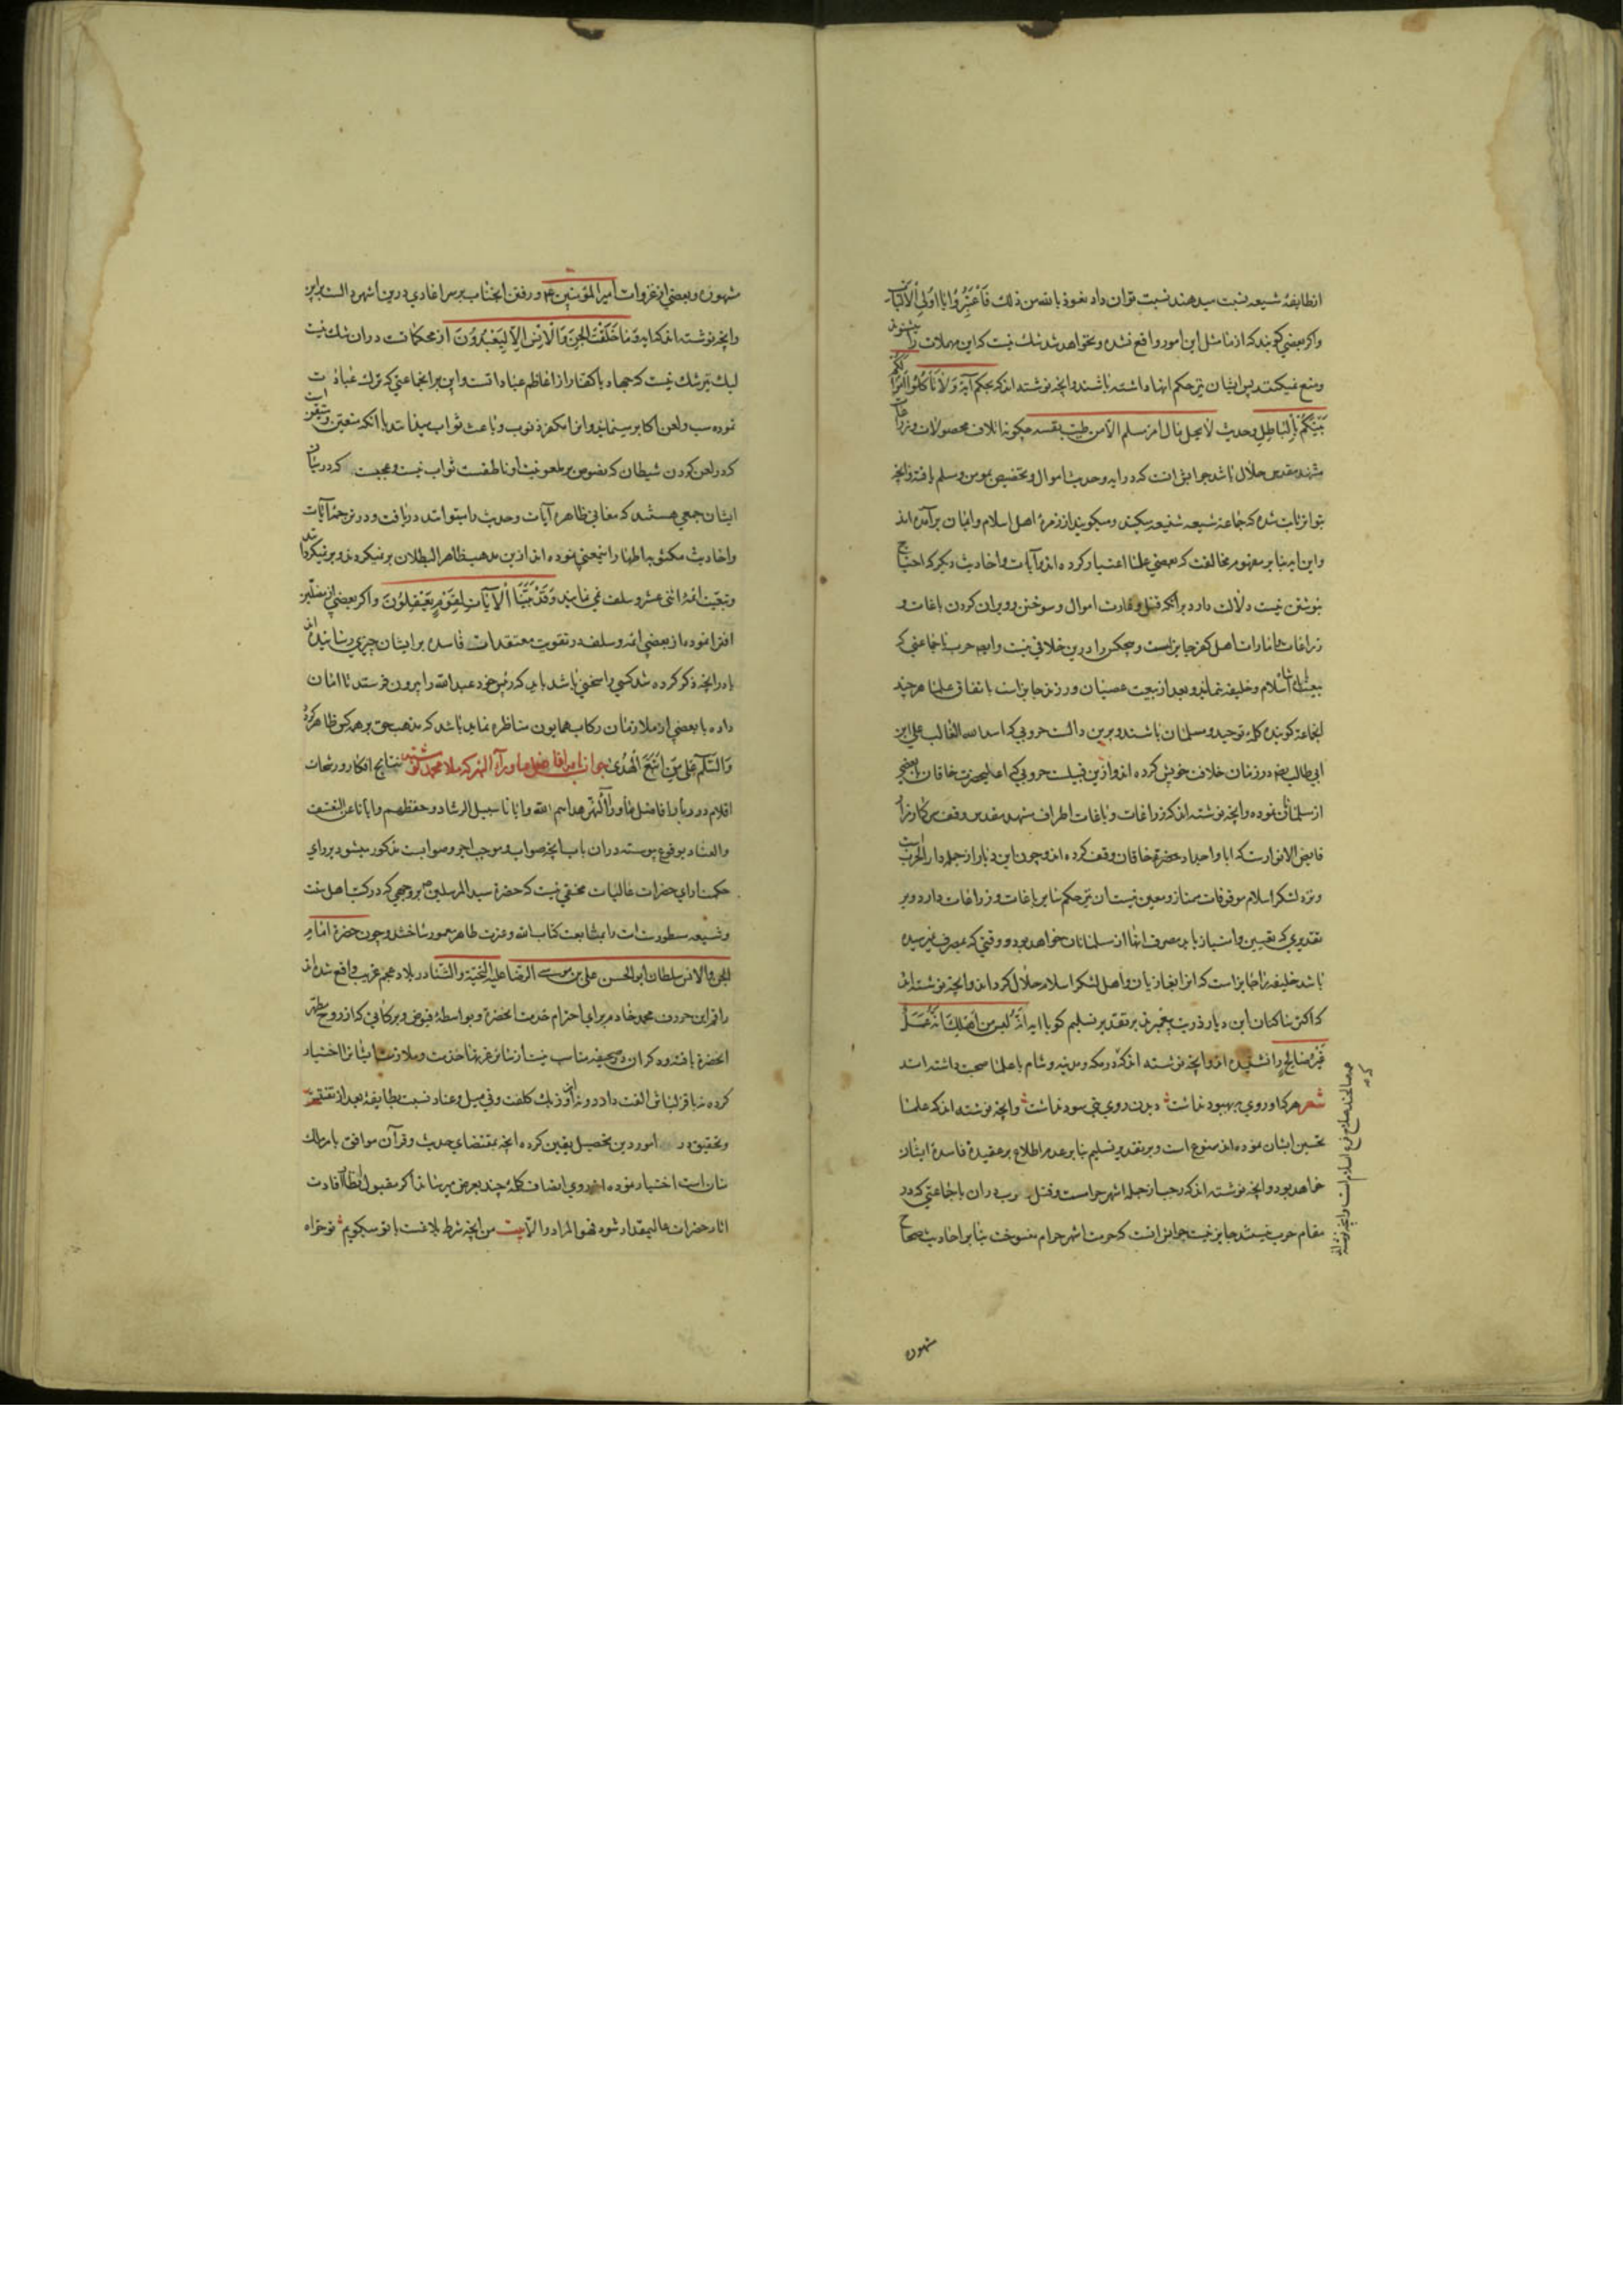 انطایفهٔ شیعه نسبت سیدهند نسبت توان داد نعوذ بالله من ذلك فَاعْتَبِرُوا يَا اُولِي الْاَلْبَاب
واکر بعضی کویند که از ما مثل این امور واقع نشده ونخواهد شد شك نیست که این مهملات را میشنوند
ومنع نمیکنند پس ایشان نیز حکم انها داشته باشند وانچه نوشته اند که بحکم آیهٔ وَلَا تَأْكُلُوا اَمْوَالَكُمْ
بَيْنَكُمْ بِالْبَاطِلِ وحدیث لا یحل مال امرء مسلم الا من طیب نفسه چکونه اتلاف محصولات وزراعات
مشهد مقدس حلال باشد جوابش انست که در ایه وحدیث اموال وتخصیص بمومن ومسلم یافته وانچه
بتواتر ثابت شده که جماعة شیعه شنیعه میکنند ومیکویند از زمرهٔ اهل اسلام وایمان برآمده اند
واین ایه بنا بر مفهوم مخالفت که بعضی علما اعتبار کرده اند وآیات واحادیث دیکر که احتیاج
بنوشتن نیست دلالت دارد برآنکه قتل وغارت اموال وسوختن وویران کردن باغات و
زراعات وعمارات اهل کفر جایز است وهیچکس را درین خلافی نیست وایضا حرب با جماعتی که
بیعت با پادشاه اسلام وخلیفه نمایند وبعد از بیعت عصیان ورزند جایز است باتفاق علما هرچند
انجماعة کوینده کلمهٔ توحید ومسلمان باشند وبرین دالست حروبی که اسد الله الغالب علی ابن
ابی طالب رضه در زمان خلافت خویش کرده اند وازین قبیلست حروبی که اعلیحضرت خاقان بعضی
از سلمانان نموده وانچه نوشته اند که زراعات وباغات اطراف مشهد مقدس وقف سرکار مزار
فایض الانوارست که ابا واجداد حضرة خاقان وقف کرده اند وچون این دیار از جمله دار الحرب است
ونزد لشکر اسلام موقوفات ممتاز ومعین نیست ان نیز حکم سایر باغات وزراعات دارد وبر
تقدیری که تعیین وامتیاز یابد مصرف انها از سلمانان خواهد بود ووقتی که بمصرف نمیرسیده
باشد خلیفه را جایز است که انرا بغازیان واهل لشکر اسلام حلال کرداند وانچه نوشته اند
که اکثر ساکنان این دیار ذریت پیغمبرند بر تقدیر تسلیم کویا ایه اِنَّهُ لَيْسَ مِنْ اَهْلِكَ اِنَّهُ عَمَلٌ
غَيْرُ صَالِحٍ را نشنیده اند وانچه نوشته اند که در مکه ومدینه وشام با علما صحبت داشته اند
شعر هرکه او روی بهبود نداشت دیدن روی نبی سود نداشت وانچه نوشته اند که علما
تحسین ایشان نموده اند ممنوع است وبر تقدیر تسلیم بنا بر عدم اطلاع بر عقیدهٔ فاسدهٔ ایشان
خواهد بود وانچه نوشته اند که رجب از جمله اشهر حرامست وقتل وحرب دران با جماعتی که در
مقام حرب نیستند جایز نیست جوابش انست که حرمت اشهر حرام منسوخست بنا بر احادیث صحاح
مشهون
مشهوره وبعضی از غزوات امیر المؤمنین ع ورفتن انجناب بر سر اعادی درین اشهر دالست براین
وانچه نوشته اند که ایه وَمَا خَلَقْتُ الْجِنَّ وَالْاِنْسَ اِلَّا لِيَعْبُدُونَ از محکمات است دران شك نیست
لیك نیز شك نیست که جهاد با کفار از اعاظم عبادات است واین بر انجماعتی که ترك عبادت
نموده سب ولعن اکابر مینمایند وانرا مکفر ذنوب وباعث ثواب میدانند با انکه متعین ومتیقن است
که در لعن کردن شیطان که نصوص بر ملعونیت او ناطقست ثواب نیست وعجبست که در میان
ایشان جمعی هستند که معانی ظاهره آیات وحدیث را میتوانند دریافت ودر ترجمهٔ آیات
واحادیث مکتوبه اظهار این معنی نموده اند ازین مذهب ظاهر البطلان بر نمیکردند
وتبعیت ائمهٔ اثنی عشر وسلف نمی نمایند وَقَدْ بَيَّنَّا الْآيَاتِ لِقَوْمٍ يَعْقِلُونَ واکر بعضی از مضلین
افترا نموده از بعضی ائمه وسلف در تقویت معتقدات فاسده بر ایشان چیزی رسانیده اند
یا در انچه ذکر کرده شد کسی را سخنی باشد باید که رئیس خود عبدالله را بیرون فرستد تا امان
داده با بعضی از ملازمان رکاب همایون مناظره نماید باشد که مذهب حق بر همه کس ظاهر کردد
وَالسَّلَامُ عَلَى مَنِ اتَّبَعَ الْهُدَى جواب افاضل ماوراء النهر که ملا محمد نوشته نتایج افکار ورشحات
اقلام دور بار افاضل ماوراء النهر هداهم الله وایانا سبیل الرشاد وحفظهم وایانا عن التعسف
والعناد بوقوع پیوسته دران باب انچه صواب وموجب اجر وثوابست مذکور میشود بر رای
حکمت ارای حضرات عالیات مخفی نیست که حضرة سید المرسلین ص بروجهی که در کتب اهل سنت
وشیعه مسطورست امت را بمتابعت کتاب الله وعترت طاهره مامور ساختند وچون حضرة امام
الجن والانس سلطان ابو الحسن علی بن موسی الرضا علیه التحیة والثنا در بلاد عجم غریب واقع شده اند
راقم این حروف محمد خادم برای احترام خدمت انحضرة وبواسطهٔ فیوض وبرکاتی که از روح مطهر
انحضرة یافته وذکر ان درین صحیفه مناسب نیست از سایر غربا خدمت وملازمت ایشانرا اختیار
کرده نه با قزلباش الفت دارد ونه از اوزبك کلفت وفی میل وعناد نسبت بطایفهٔ بعد از تفتیش
وتحقیق در امور دین تحصیل یقین کرده انچه بمقتضای حدیث وقرآن موافق با مر ملك
منان است اختیار نموده از روی انصاف کلمهٔ چند بعرض میرساند اکر مقبول انظار افادت
اثار حضرات عالیمقدار شود فهو المراد والا بیت من انچه شرط بلاغست با تو میکویم تو خواه